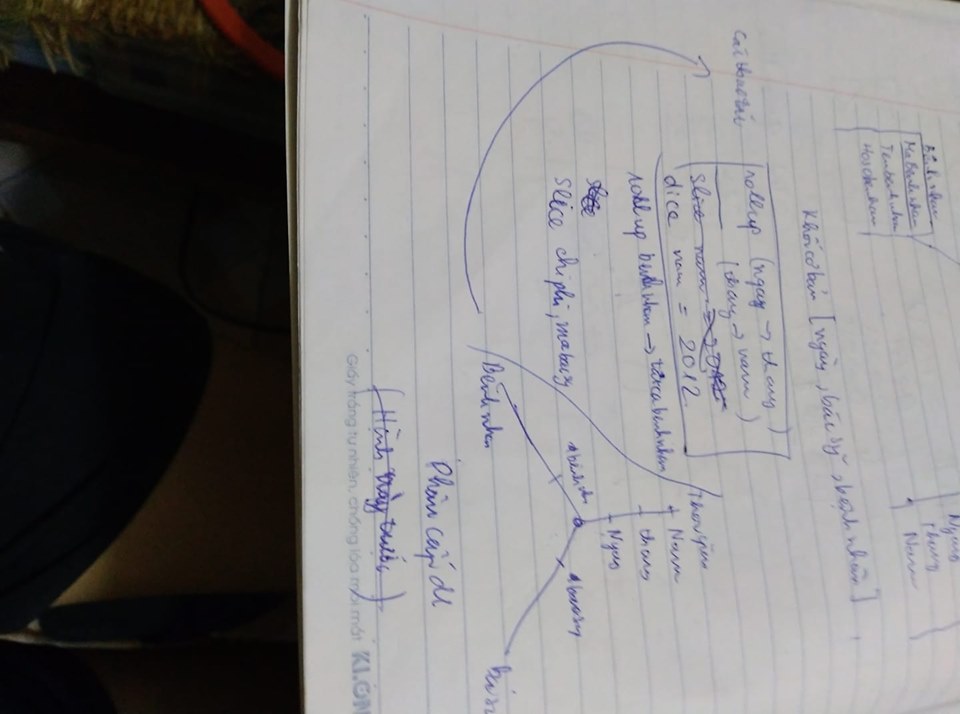 Bệnh nhan
MaBenhnhan
Tenbenhnhan
Hosobenhan
Ngay
Thang
Nam
Khối cơ bản [ngày, bác sỹ, bệnh nhân]
Các thao tác
rollup (ngay → thang)
(thang → nam)
slice nam = 2012
dice nam = 2012
roll up benh nhan → tatca benhnhan
slice chi phi, mabacsy
Thời gian
Nam
thang
Ngay
Bệnh nhan
Phân cấp dl
(Hình này trước)
Giấy trắng tự nhiên, chống lóa mỏi mắt KLON